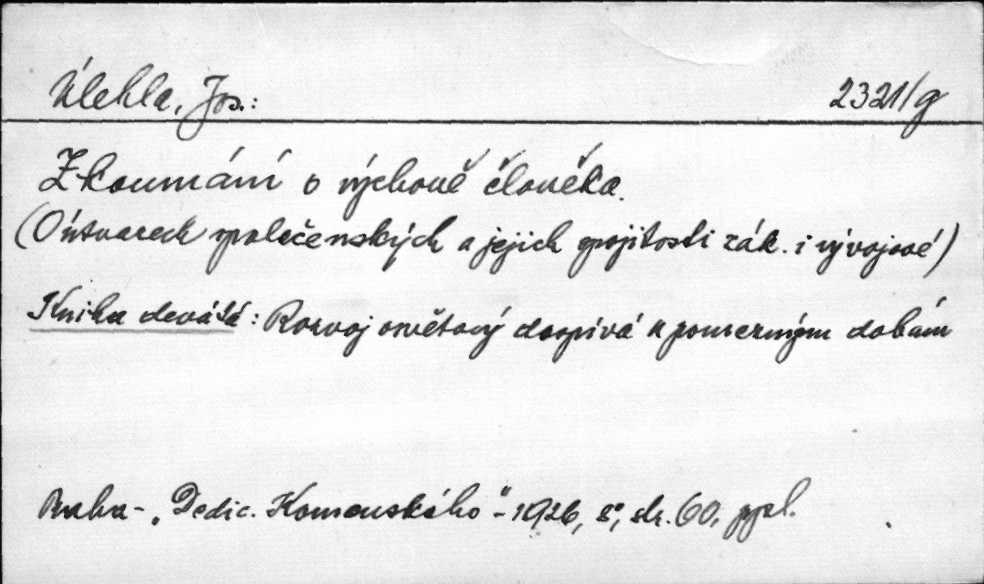 Úlehla, Jos.: 2321/g
Zkoumání o výchově člověka.
(O útvarech společenských a jejich spojitosti zák. i vývojové)
Kniha devátá: Rozvoj osvětový dospívá k pomezným dobám
Praha - „Dědic. Komenského" - 1926, 8°, str. 60,